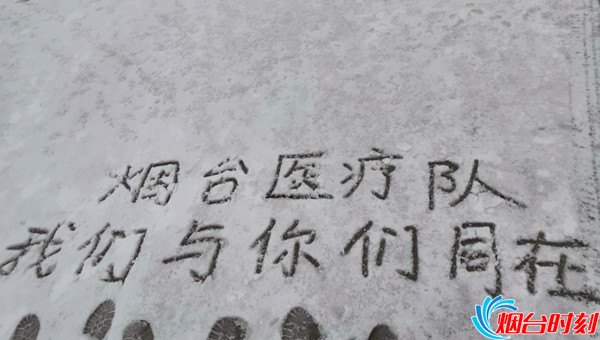 烟台医疗队
我们与你们同在
烟台时刻